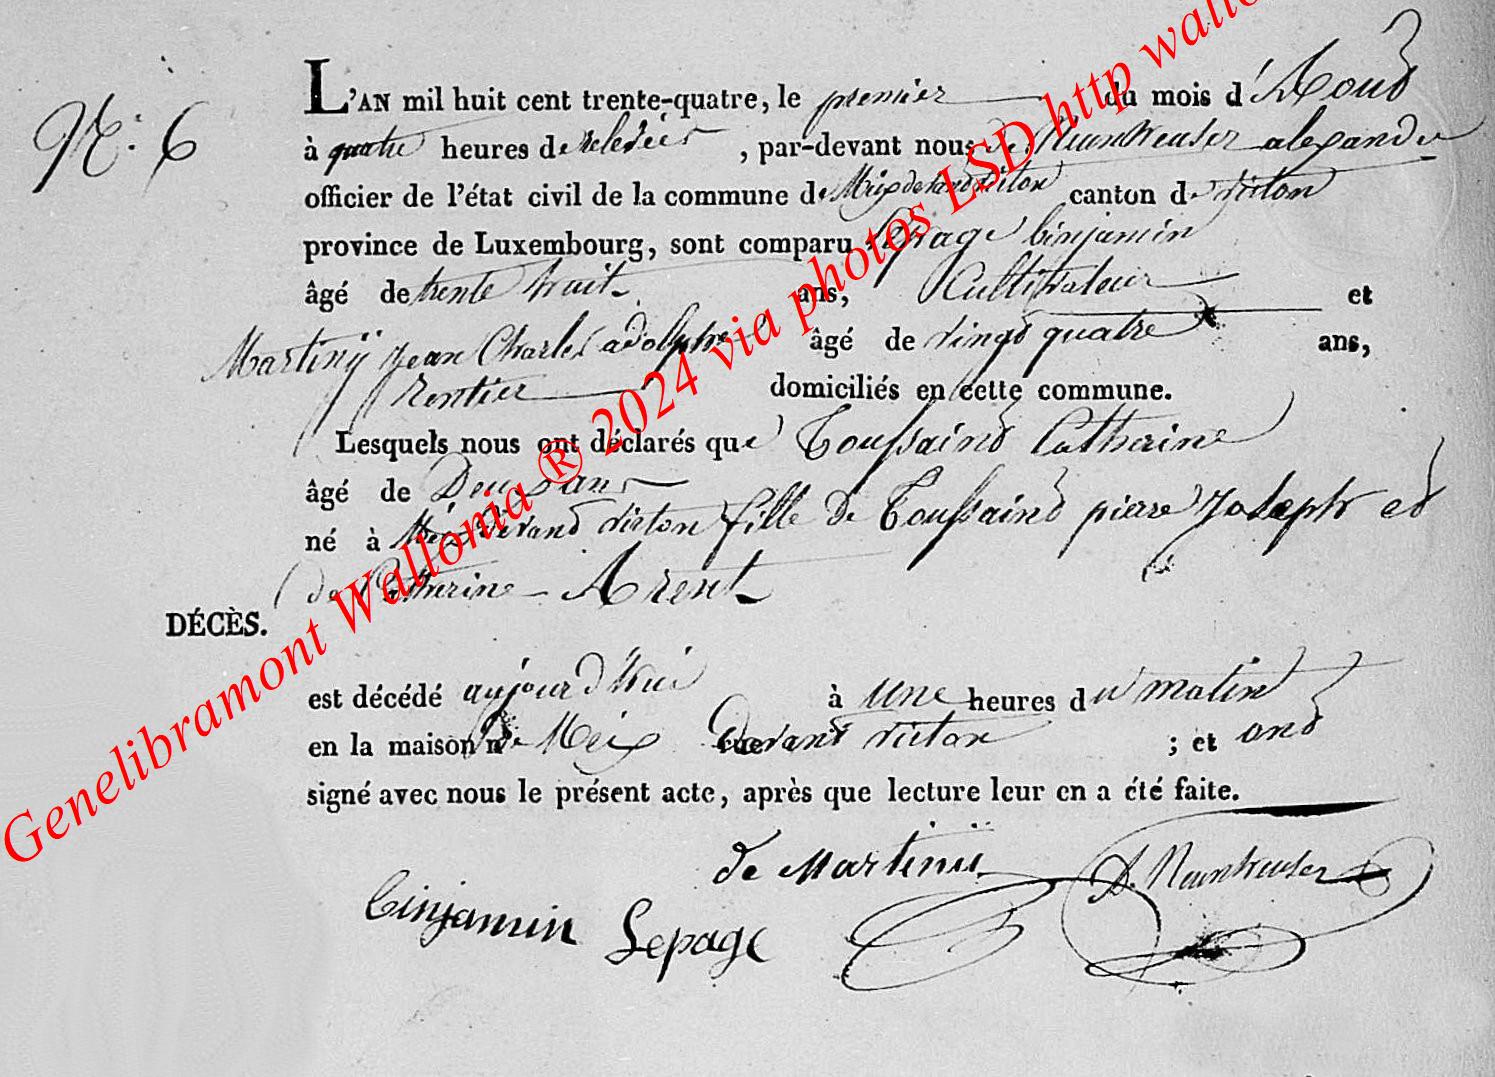 N.o 6
L'AN mil huit cent trente-quatre, le premier du mois d'Aout
à quatre heures de relevées, par-devant nous de Neunheuser alexandre
officier de l'état civil de la commune de Meix devand virton canton de virton
province de Luxembourg, sont comparu lepage binjamin
âgé de trente huit ans, Cultivateur et
Martiny jean Charles adolphe âgé de vingt quatre ans,
Rentier domiciliés en cette commune.
Lesquels nous ont déclarés que Toussaind Catherine
âgé de Deux ans
né à Meix devand virton fille de Toussaind pierre Joseph et
de Catherine Arent
DÉCÈS.
est décédé aujourd'hui à une heures du matin
en la maison n de Meix rue devant virton ; et ond
signé avec nous le présent acte, après que lecture leur en a été faite.
de Martinij A. Neunheuser
binjamin Lepage
Genelibramont Wallonia ® 2024 via photos LSD http wallo